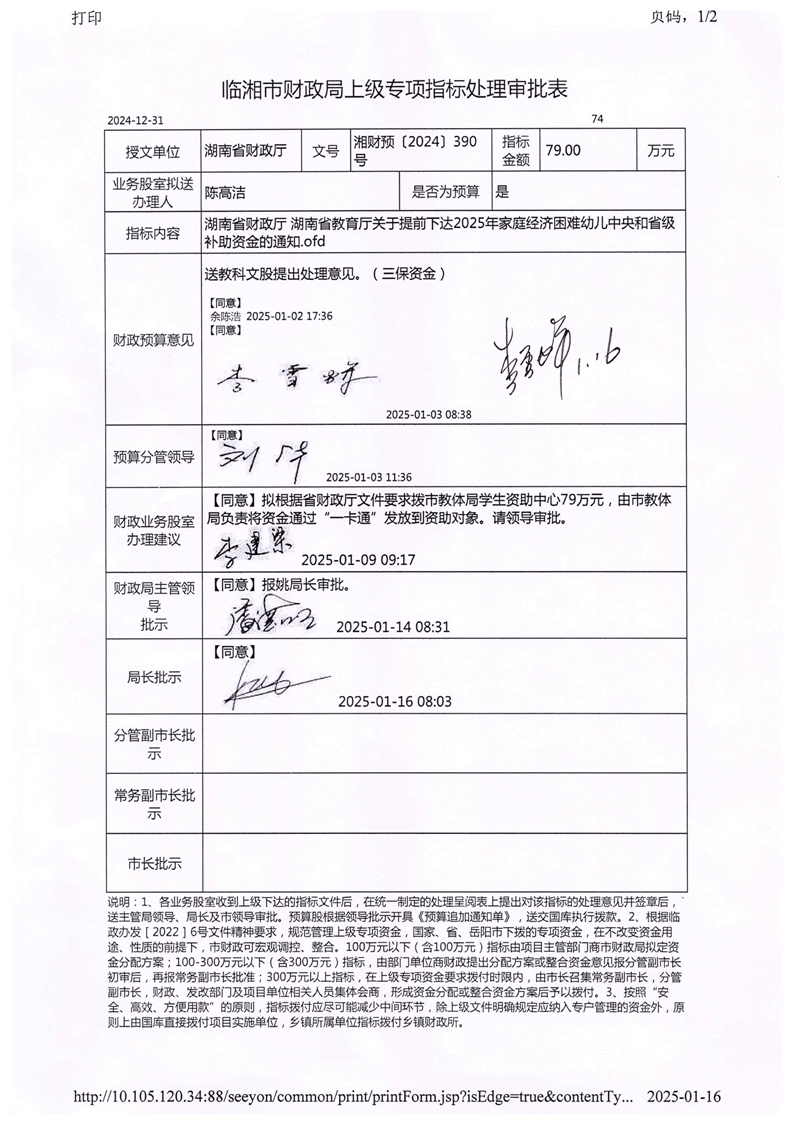 打印
页码，1/2
临湘市财政局上级专项指标处理审批表
2024-12-31
74
授文单位
湖南省财政厅
文号
湘财预〔2024〕390
号
指标
金额
79.00
万元
业务股室拟送
办理人
陈高洁
是否为预算
是
指标内容
湖南省财政厅 湖南省教育厅关于提前下达2025年家庭经济困难幼儿中央和省级
补助资金的通知.ofd
财政预算意见
送教科文股提出处理意见。（三保资金）
【同意】
余陈浩 2025-01-02 17:36
【同意】
1.16
2025-01-03 08:38
预算分管领导
【同意】
2025-01-03 11:36
财政业务股室
办理建议
【同意】拟根据省财政厅文件要求拨市教体局学生资助中心79万元，由市教体
局负责将资金通过“一卡通”发放到资助对象。请领导审批。
2025-01-09 09:17
财政局主管领
导
批示
【同意】报姚局长审批。
2025-01-14 08:31
局长批示
【同意】
2025-01-16 08:03
分管副市长批
示
常务副市长批
示
市长批示
说明：1、各业务股室收到上级下达的指标文件后，在统一制定的处理呈阅表上提出对该指标的处理意见并签章后，
送主管局领导、局长及市领导审批。预算股根据领导批示开具《预算追加通知单》，送交国库执行拨款。2、根据临
政办发［2022］6号文件精神要求，规范管理上级专项资金，国家、省、岳阳市下拨的专项资金，在不改变资金用
途、性质的前提下，市财政可宏观调控、整合。100万元以下（含100万元）指标由项目主管部门商市财政局拟定资
金分配方案；100-300万元以下（含300万元）指标，由部门单位商财政提出分配方案或整合资金意见报分管副市长
初审后，再报常务副市长批准；300万元以上指标，在上级专项资金要求拨付时限内，由市长召集常务副市长，分管
副市长，财政、发改部门及项目单位相关人员集体会商，形成资金分配或整合资金方案后予以拨付。3、按照“安
全、高效、方便用款”的原则，指标拨付应尽可能减少中间环节，除上级文件明确规定应纳入专户管理的资金外，原
则上由国库直接拨付项目实施单位，乡镇所属单位指标拨付乡镇财政所。
http://10.105.120.34:88/seeyon/common/print/printForm.jsp?isEdge=true&contentTy... 2025-01-16